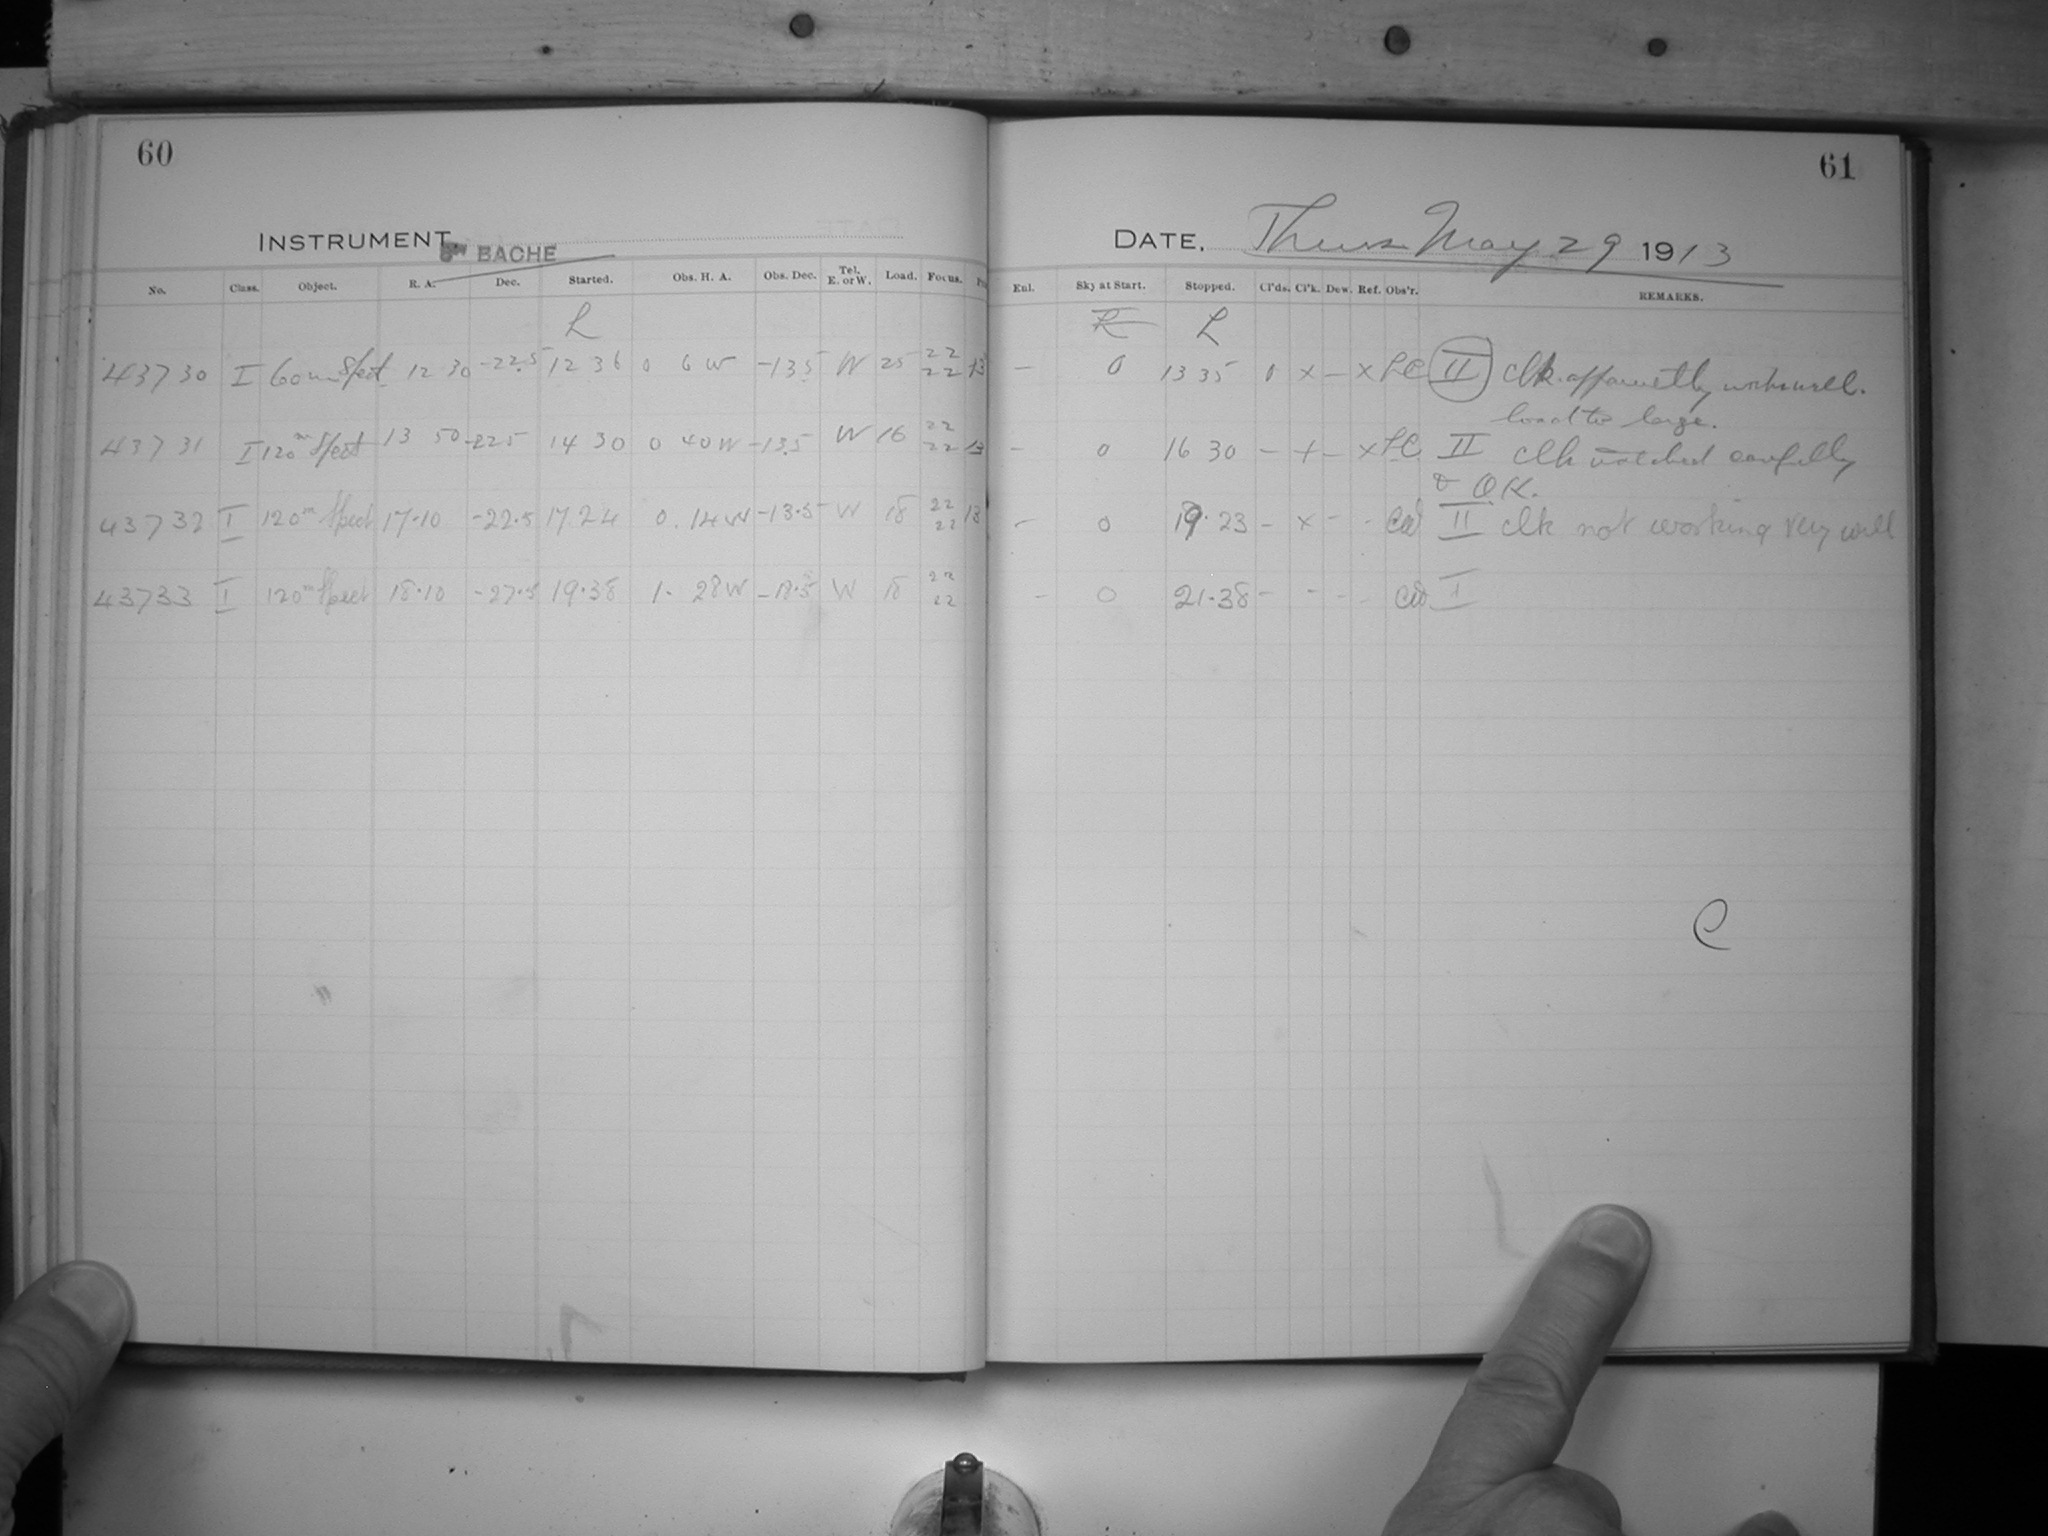 60
INSTRUMENT. BACHE
No. Class. Object. R. A. Dec. Started. Obs. H. A. Obs. Dec. Tel. E. or W. Load. Focus.
43730 I 60m Spect 12 30 -22.5 12 36 0 6 W -13.5 W 25 22 22 13
43731 I 120m Spect 13 50 -22.5 14 30 0 40 W -13.5 W 16 22 22 13
43732 I 120m Spect 17.10 -22.5 17 24 0. 14 W -13.5 W 18 22 22 13
43733 I 120m Spect 18.10 -27.5 19.38 1. 28 W -18.5 W 18 22 22
61
DATE. Thurs. May 29 1913
Enl. Sky at Start. Stopped. Cl'ds. Cl'k. Dew. Ref. Obs'r. REMARKS.
— 0 13 35 0 x – x LC II Clk. apparently works well.
load too large.
– 0 16 30 – + – x LC II Clk watched carefully
& O.K.
– 0 19.23 – x – - CW II Clk not working very well
– 0 21.38 – - - - CW I
C